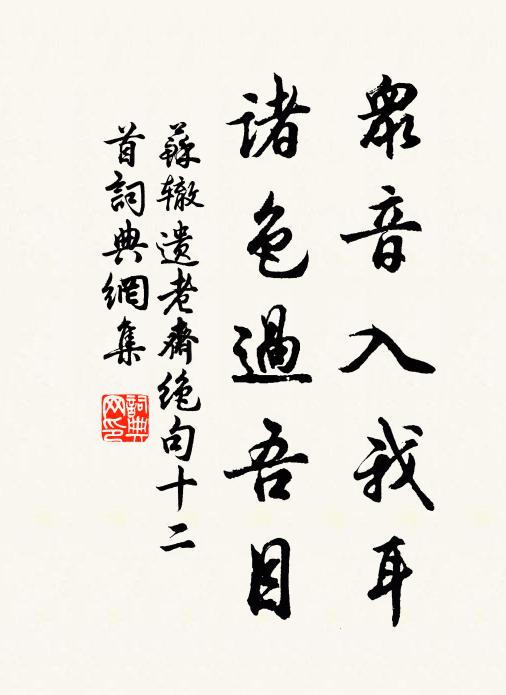 眾音入我耳
諸色過吾目
蘇辙遗老齋绝句十二
首詞典網集
詞典
网印